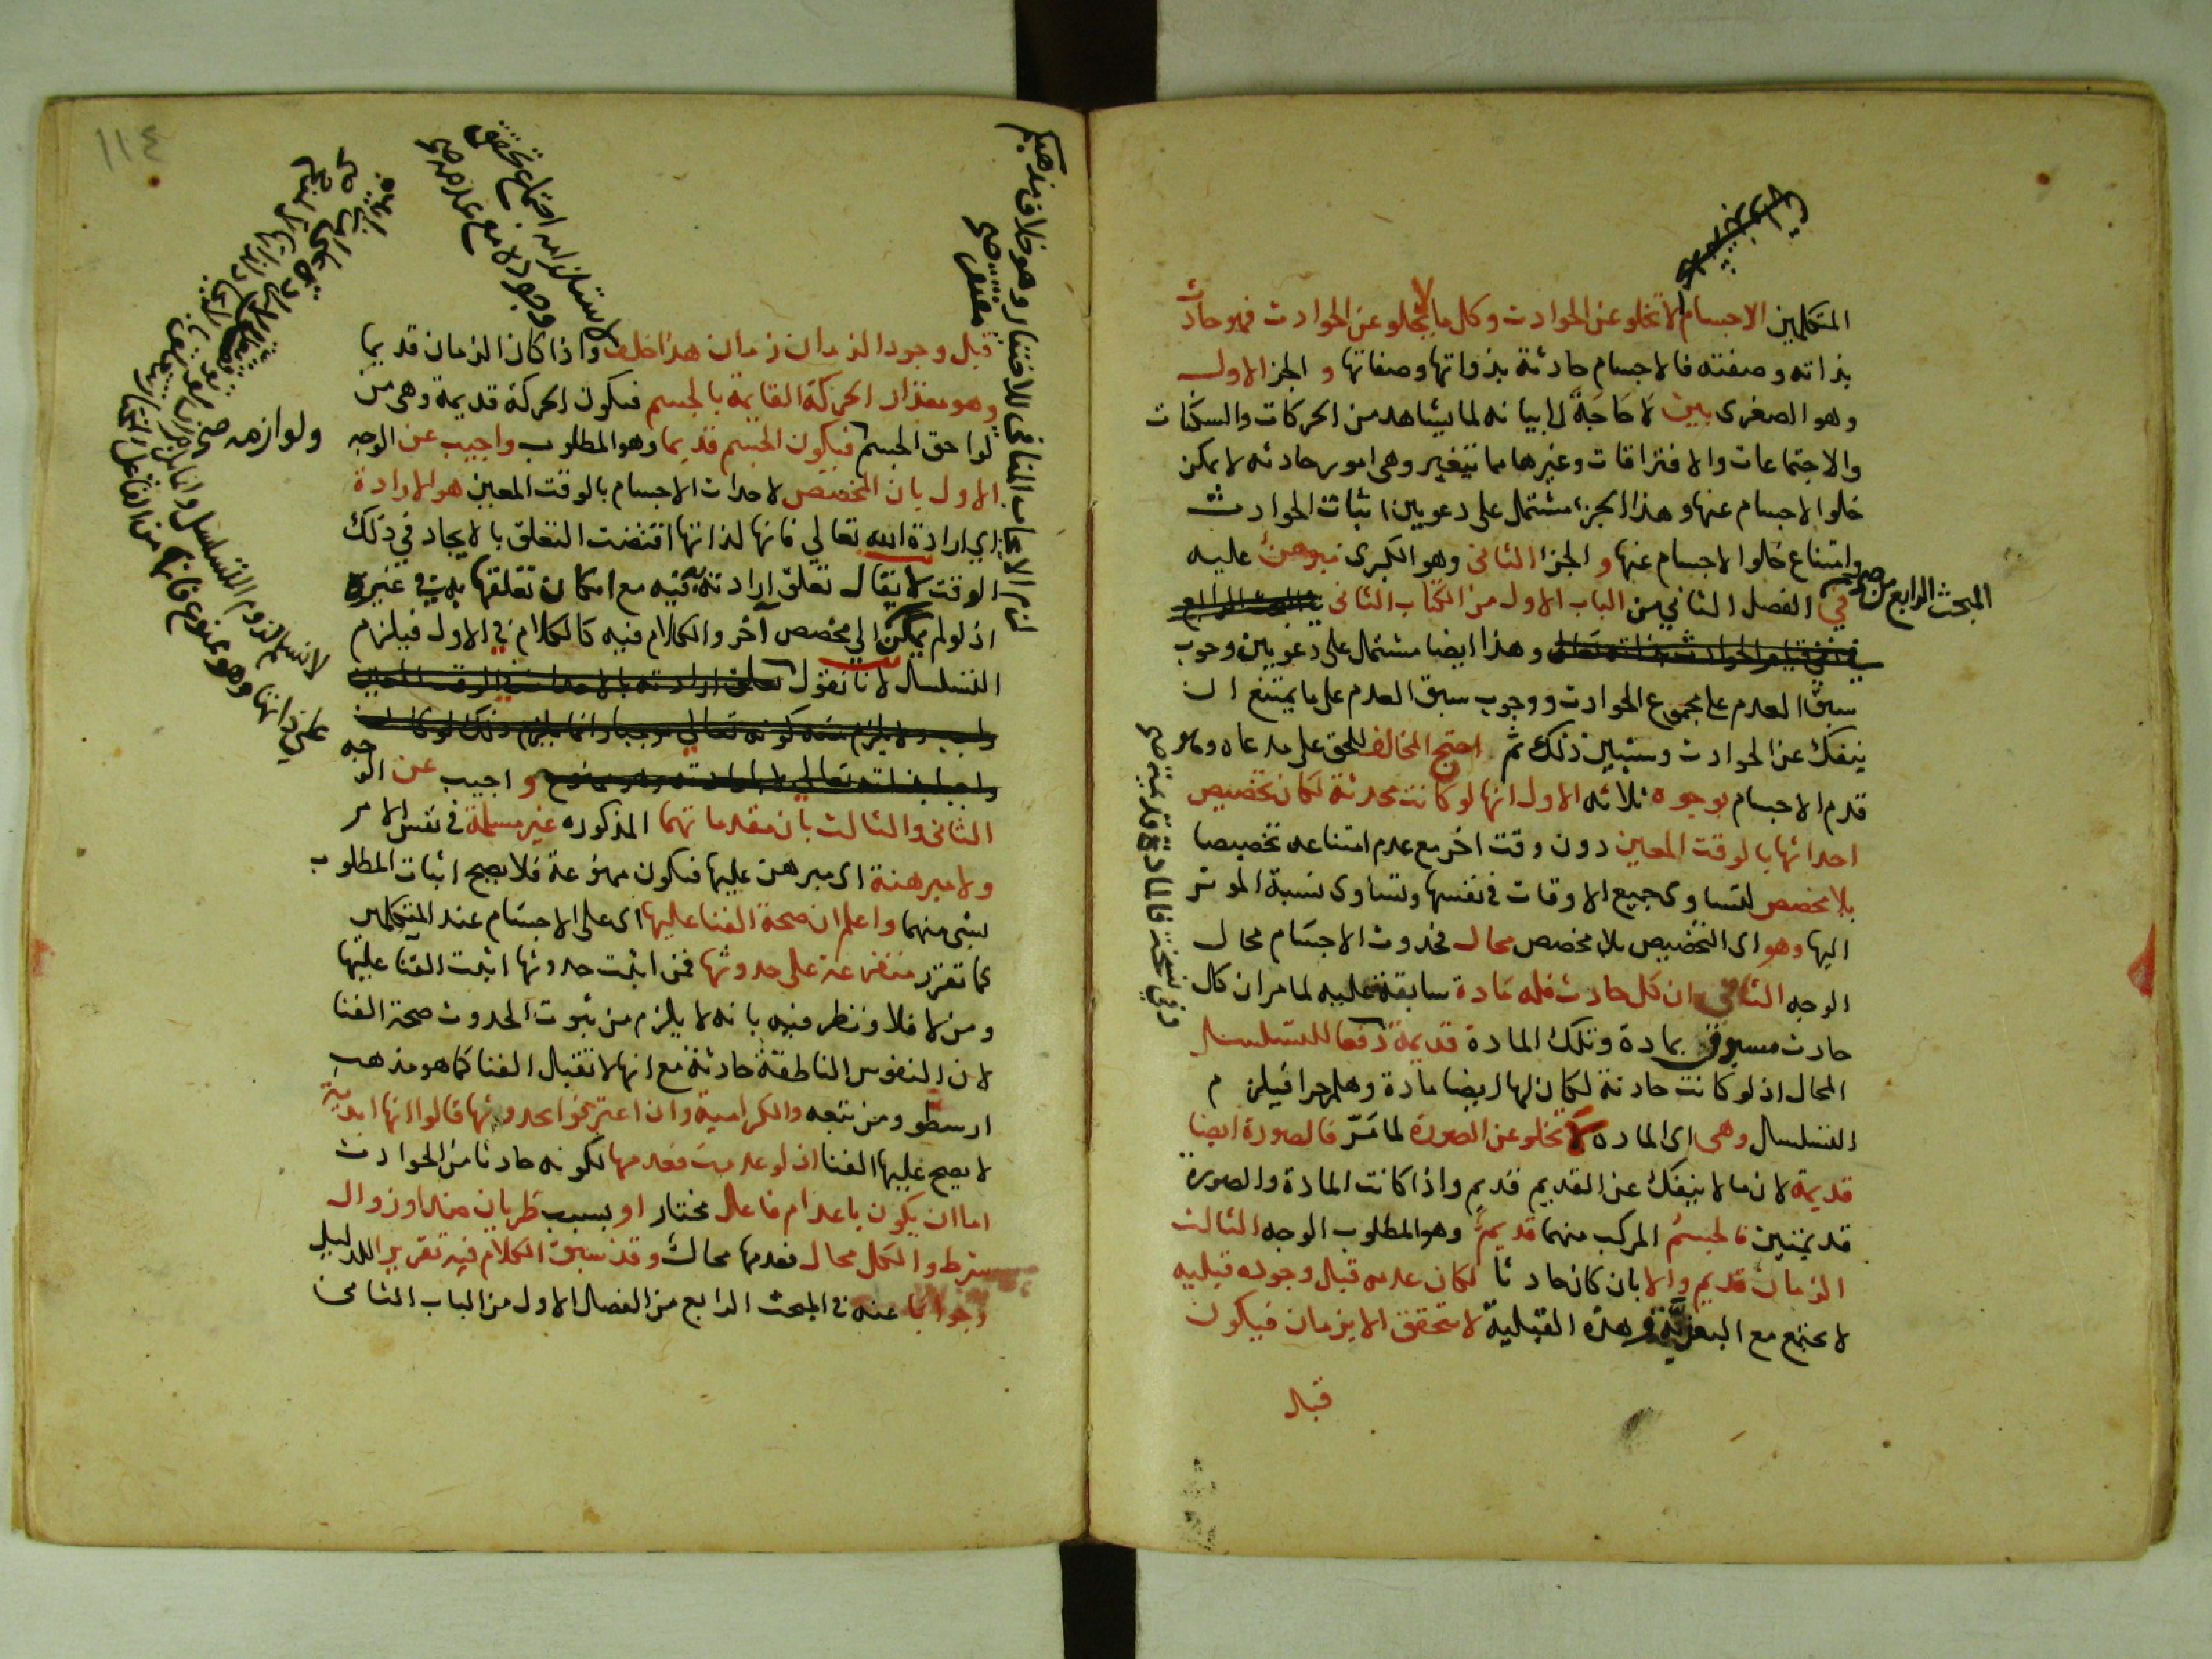 المتكلمين الاجسام لا تخلو عن الحوادث وكل ما لا يخلو عن الحوادث فهو حادث
بذاته وصفته فالاجسام حادثة بذواتها وصفاتها و الجز الاول
وهو الصغرى بين لا حاجة الى بيانه لما يشاهد من الحركات والسكنات
والاجتماعات والافتراقات وغيرها مما تتغير وهى امور حادثه لا يمكن
خلوا الاجسام عنها وهذا الجزء مشتمل على دعويين اثبات الحوادث
وامتناع خلوا الاجسام عنها و الجزا الثانى وهو الكبرى مبرهن عليه
المبحث الرابع من صح
في الفصل الثاني من الباب الاول من الكتاب الثانى
وهذا ايضا مشتمل على دعويين وجوب
سبق العدم على مجموع الحوادث ووجوب سبق العدم على ما يمتنع ان
ينفك عن الحوادث وسيبين ذلك ثم احتج المخالف للحق على مدعاه وهو
قدم الاجسام بوجوه ثلاثه الاول انها لو كانت محدثة لكان تخصيص
احداثها بالوقت المعين دون وقت اخر مع عدم امتناعه تخصيصا
بلا مخصص لتساوى جميع الاوقات فى نفسها وتساوى نسبة الموثر
اليها وهو اى التخصيص بلا مخصص محال فحدوث الاجسام محال
الوجه الثانى ان كل حادث فله مادة سابقة عليه لما مر ان كل
حادث مسبوق بمادة وتلك المادة قديمة دفعا للتسلسل
المحال اذ لو كانت حادثة لكان لها ايضا مادة وهلم جرا فيلزم
التسلسل وهى اى الماده لا تخلو عن الصورة لما مر فالصورة ايضا
قديمة لان ما لا ينفك عن القديم قديم واذا كانت المادة والصوره
قديمتين فالجسم المركب منهما قديم وهو المطلوب الوجه الثالث
الزمان قديم والا بان كان حادثا لكان عدمه قبل وجوده قبليه
لا تجتمع مع البعدية وهذه القبلية لا تتحقق الا بزمان فيكون
قبل
وفي نسخة فالمادة قديمة صح
١١٤
قبل وجود الزمان زمان هذا خلف واذا كان الزمان قديما
وهو مقدار الحركة القايمة بالجسم فتكون الحركة قديمة وهى من
لواحق الجسم فيكون الجسم قديما وهو المطلوب واجيب عن الوجه
الاول بان المخصص لاحداث الاجسام بالوقت المعين هو الارادة
اي ارادة الله تعالي فانها لذاتها اقتضت التعلق بالايجاد في ذلك
الوقت لا يقال تعلق ارادته فيه مع امكان تعلقها به في غيره
اذ لو لم يمكن الي مخصص آخر والكلام فيه كالكلام فى الاول فيلزم
التسلسل لانا نقول تعلق ارادته بالاحداث في الوقت المعين
واجب ولا يلزم منه كونه تعالي موجبا وانما يلزم ذلك لو كان
واجيب عن الوجه
الثانى والثالث بان مقدماتهما المذكوره غير مسلمة فى نفس الامر
ولا مبرهنة اى مبرهن عليها فتكون ممنوعة فلا يصح اثبات المطلوب
بشى منهما واعلم ان صحة الفنا عليها اى على الاجسام عند المتكلمين
كما تقرر متفرعة على حدوثها فمن اثبت حدوثها اثبت الفنا عليها
ومن لا فلا ونظر فيه بانه لا يلزم من ثبوت الحدوث صحة الفنا
لان النفوس الناطقة حادثة مع انها لا تقبل الفنا كما هو مذهب
ارسطو ومن تبعه والكرامية وان اعترفوا بحدوثها قالوا انها ابدية
لا يصح عليها الفنا اذ لو عدمت فعدمها لكونه حادثا من الحوادث
اما ان يكون باعدام فاعل مختار او بسبب طريان ضد او زوال
شرط والكل محال فعدمها محال وقد سبق الكلام فيه تقرير الدليل
وجوابا عنه فى المبحث الرابع من الفصل الاول من الباب الثامن
لاستلزامه اجتماع تحقق
وجوده مع عدمه صح
ولوازمه صح
لا نسلم لزوم التسلسل وانما يلزم
لزم الايجاب المنافى للاختيار وهو خلاف مذهبكم